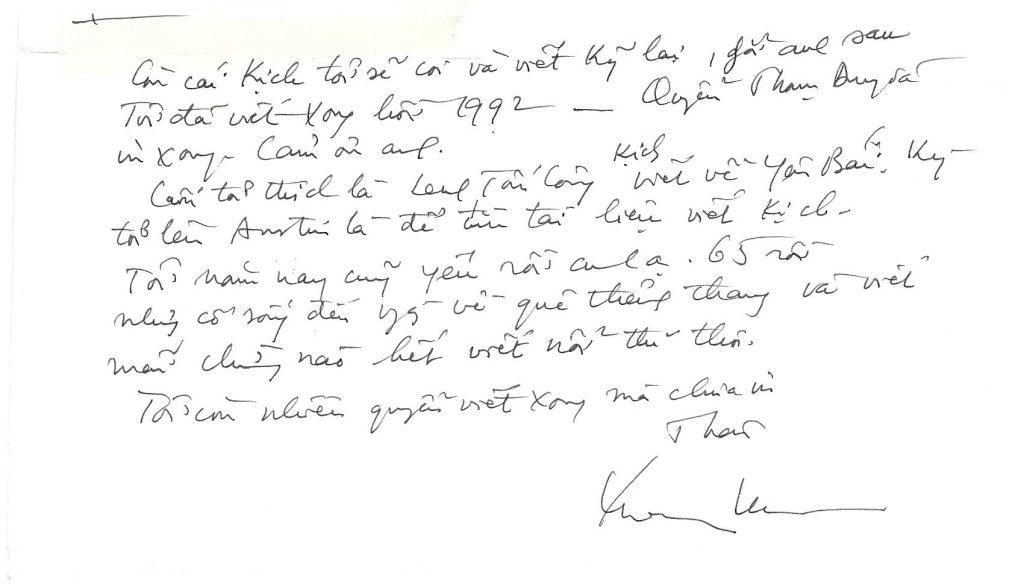 Còn cái Kịch tôi sẽ coi và viết kỹ lại, gởi anh sau
Tôi đã viết xong hồi 1992 — Quyển Phạm Duy đã
in xong. Cám ơn anh.
Cuốn tôi thích là Kịch viết về Yên Bái. Kỳ
tôi lên Austin là để tìm tài liệu viết Kịch.
Tôi năm nay cũng yếu rồi anh ạ. 65 rồi
nhưng cố sống đến về quê thẳng thang và viết
mãi chừng nào hết viết nổi thì thôi.
Tôi còn nhiều quyển viết xong mà chưa in
Thân